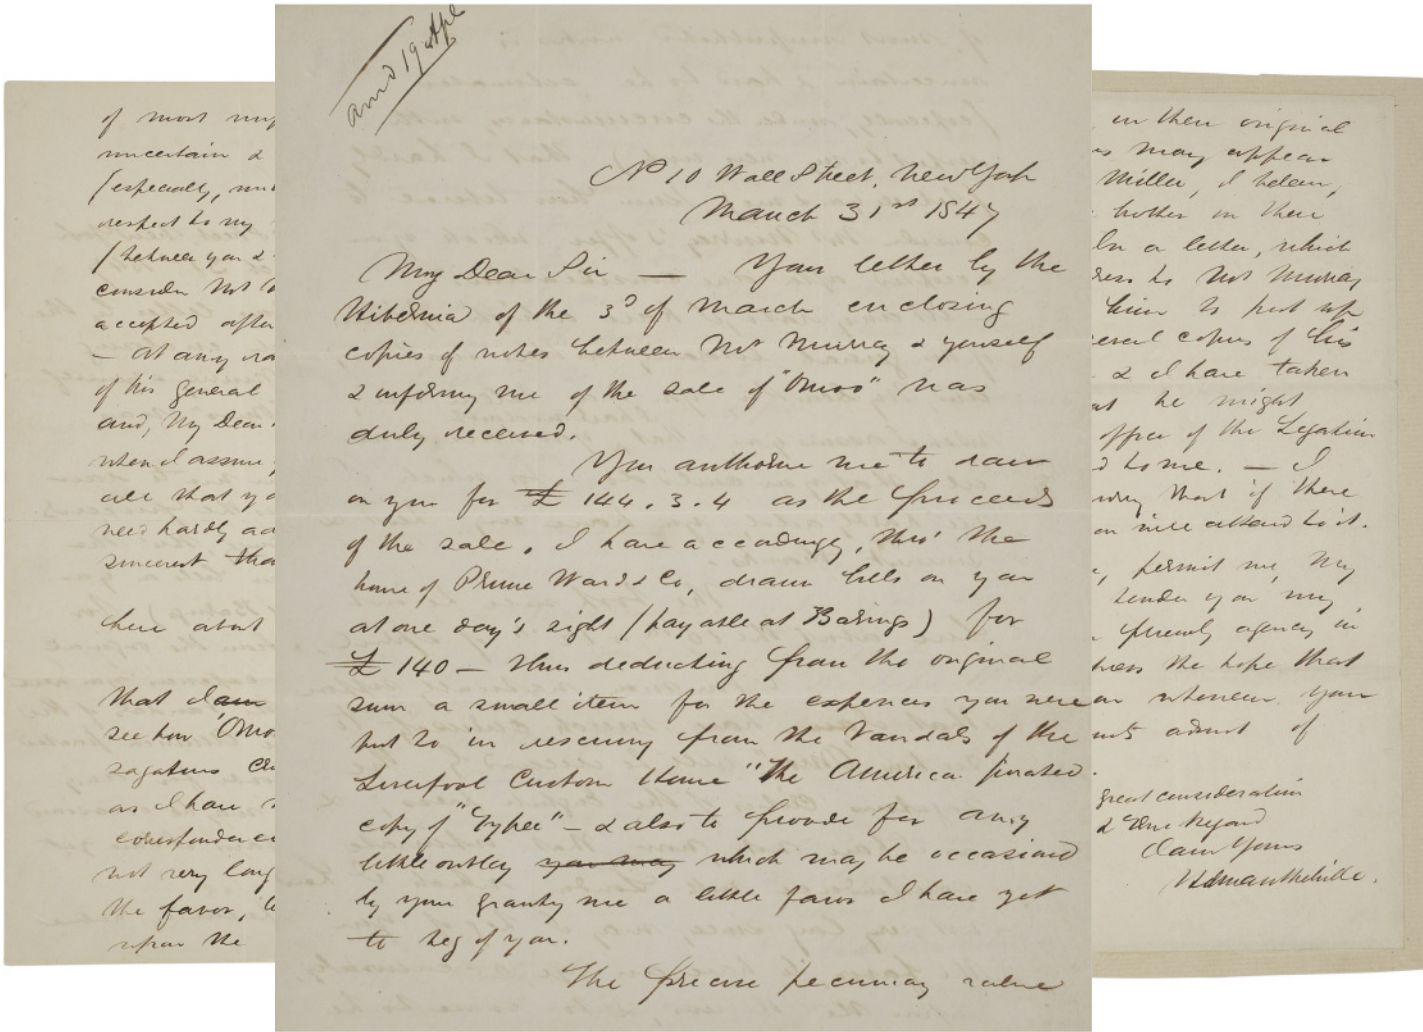 of most
uncertain &
(especially,
respect to my
(between you &
consider Mr
accepted after
— at any
of his general
and, My Dear
when I assure
all that yo
need hardly ad
sincerest tha
here about
that I am
see how "Omo
sagatious
as I have
correspondence
not very long
the favor,
upon the
ansd 19 Apl
No 10 Wall Street, New York
March 31st 1847
My Dear Sir — Your letter by the
Hibernia of the 3d of March enclosing
copies of notes between Mr Murray & yourself
& informing me of the sale of "Omoo" was
duly received.
You authorise me to draw
on you for £ 144.3.4 as the proceeds
of the sale. I have accordingly, thro' the
house of Prime Ward & Co, drawn bills on you
at one day's sight (payable at Barings) for
£ 140 — thus deducting from the original
sum a small item for the expenses you were
put to in rescuing from the Vandals of the
Liverpool Custom House "the America pirated
copy of "Typee" — & also to provide for any
little outlay you may which may be occasiond
by your granting me a little favor I have yet
to beg of you.
The precise pecuniary value
in their original
as may appear
Miller, I believe,
brother in their
In a letter, which
to Mr Murray
him to put up
several copies of his
& I have taken
he might
office of the Legation
to me. — I
that if there
will attend to it.
permit me, My
tender you my
friendly agency in
the hope that
or whenever your
admit of
great consideration
& True Regard
I am Yours
Herman Melville.